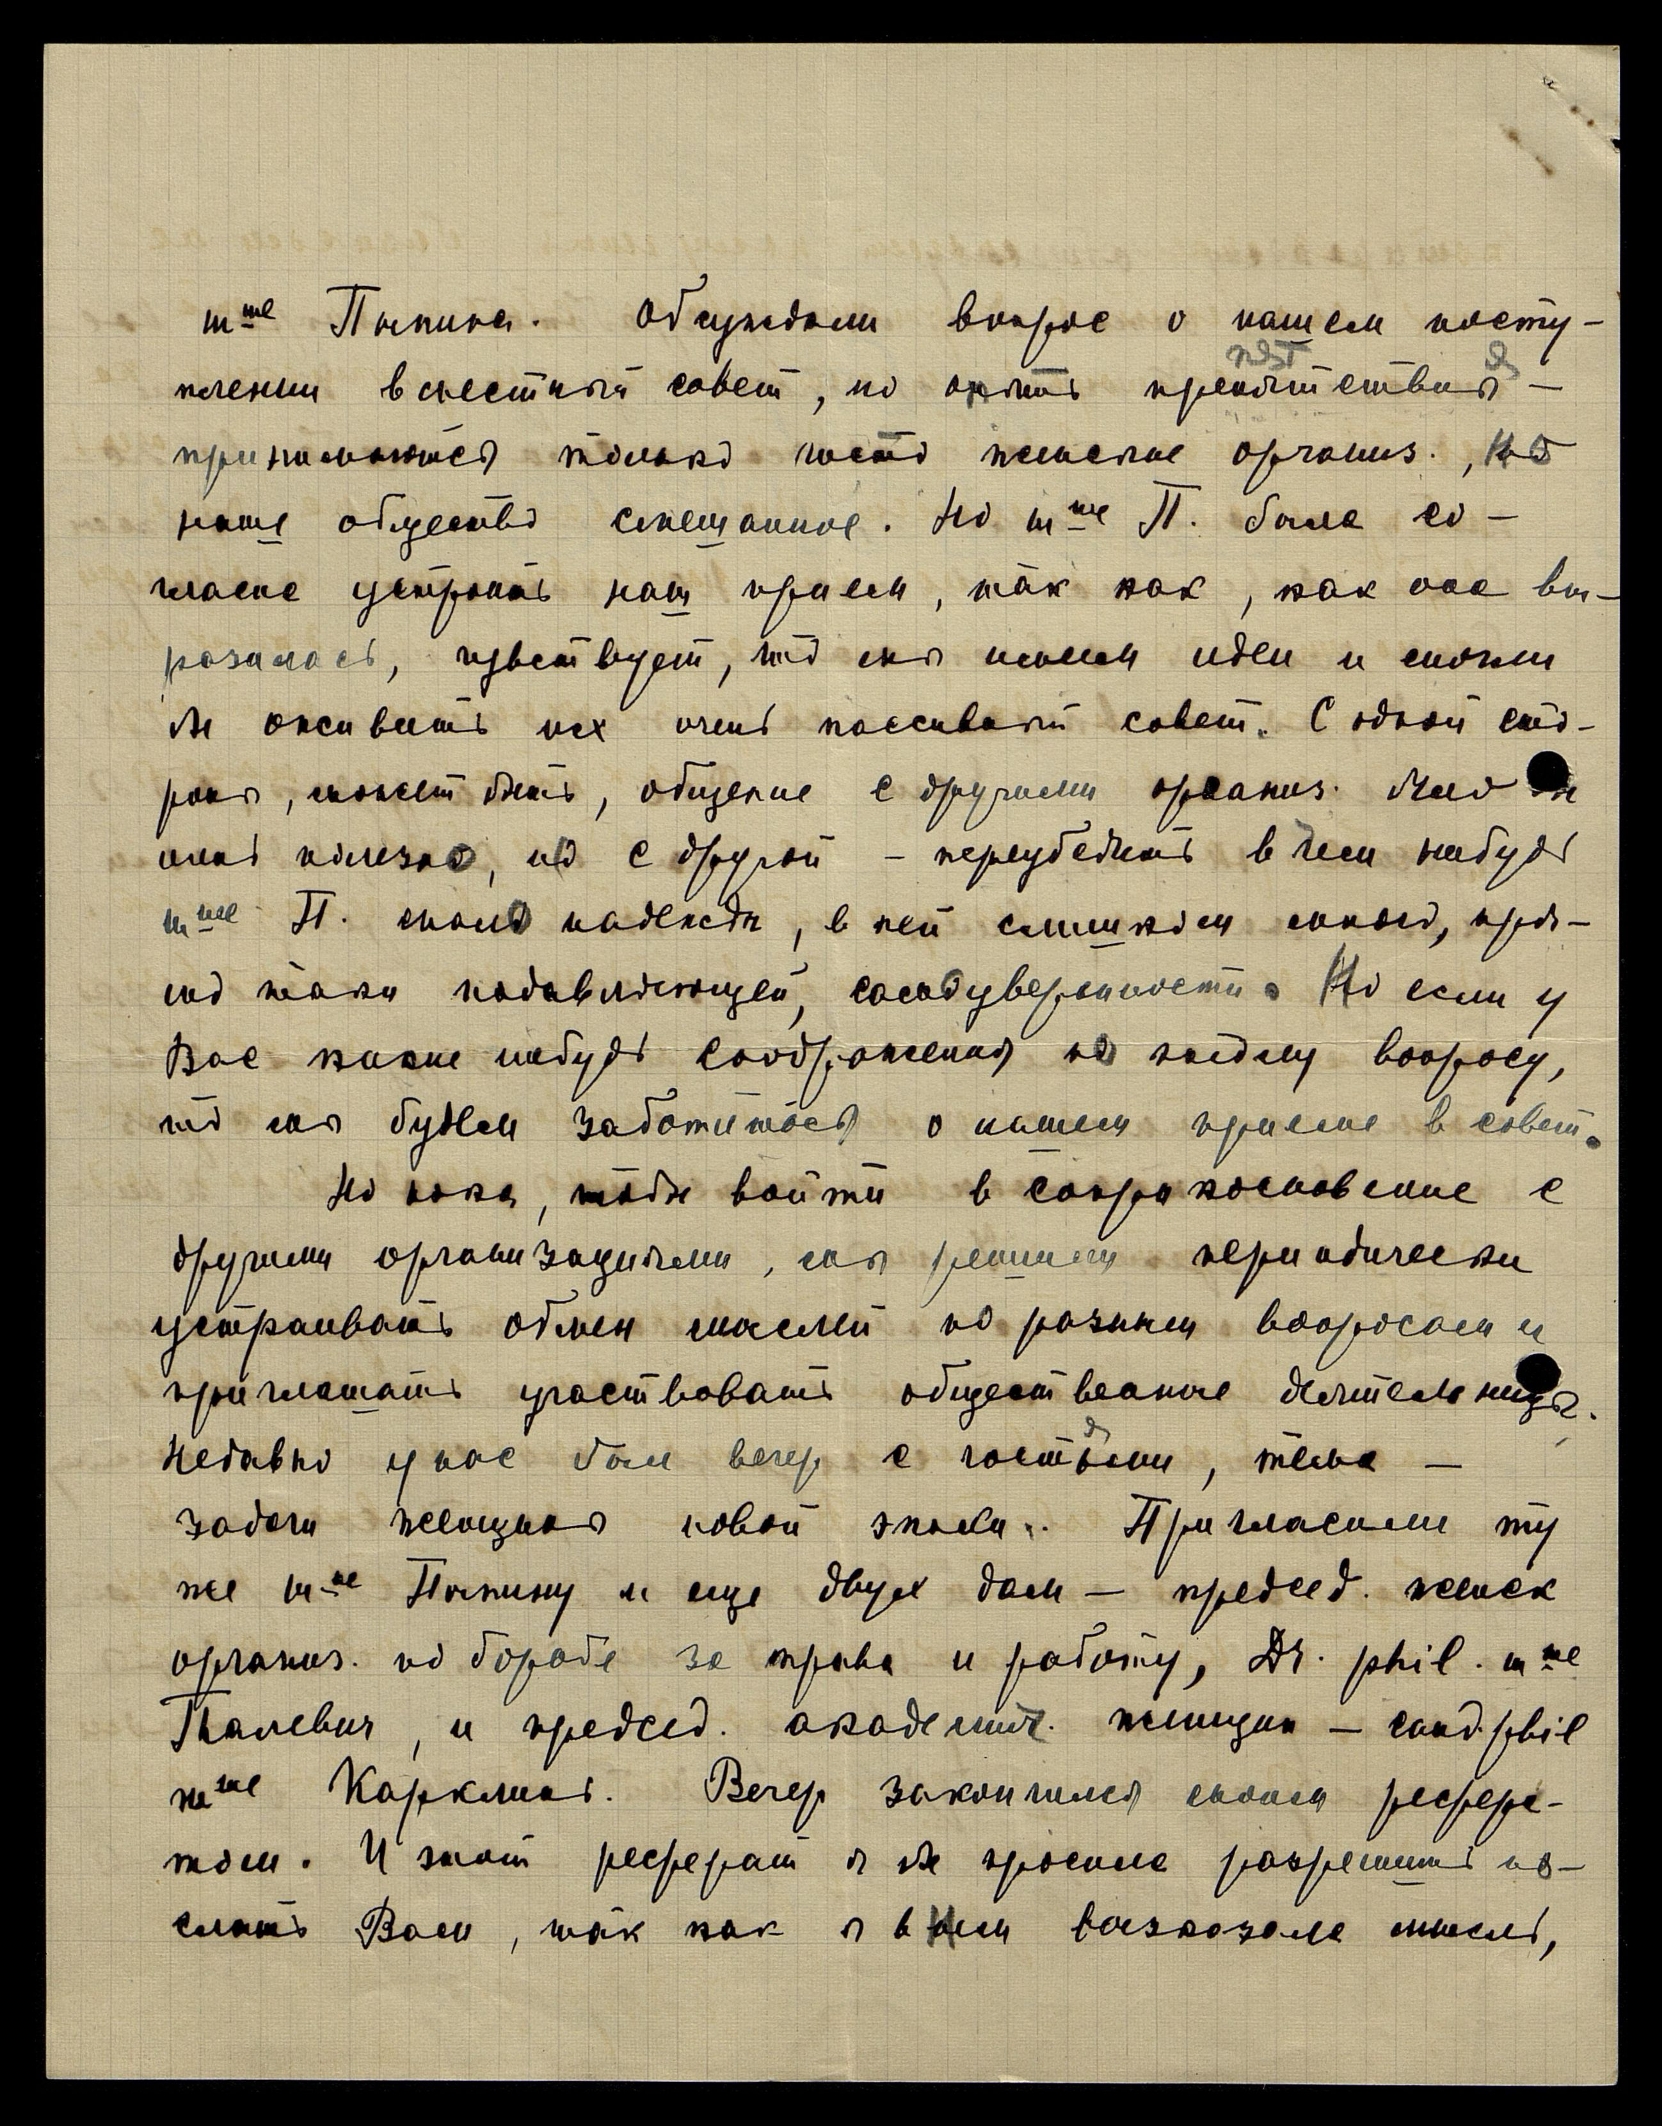 mme Пыпина. Обсуждали вопрос о нашем посту-
плении в местный совет, но опять препятствия —
принимаются только чисто женские организ., но
наше общество смешанное. Но mme П. была со-
гласна устроить наш прием, так как, как она вы-
разилась, чувствует, что мы имеем идеи и могли
бы оживить их очень пассивный совет. С одной сто-
роны, может быть, общение с другими организ. было бы
очень полезно, но с другой — переубедить в чем нибудь
mme П. мало надежды, в ней слишком много, пря-
мо таки подавляющей, самоуверенности. Но если у
Вас какие нибудь соображения по этому вопросу,
то мы будем заботиться о нашем приеме в совет.
Но пока, чтобы войти в соприкосновение с
другими организациями, мы решили периодически
устраивать обмен мыслей по разным вопросам и
приглашать участвовать общественные деятельницы.
Недавно у нас был вечер с гостями, тема —
задачи женщины новой эпохи. Пригласили ту
же mme Пыпину и еще двух дам — председ. женск
организ. по борьбе за права и работу, Dr. phil. mme
Талевич, и председ. академич. женщин — cand. phil
mme Карклинь. Вечер закончился моим рефера-
том. И этот реферат я бы просила разрешить по-
слать Вам, так как я в нем высказала мысль,